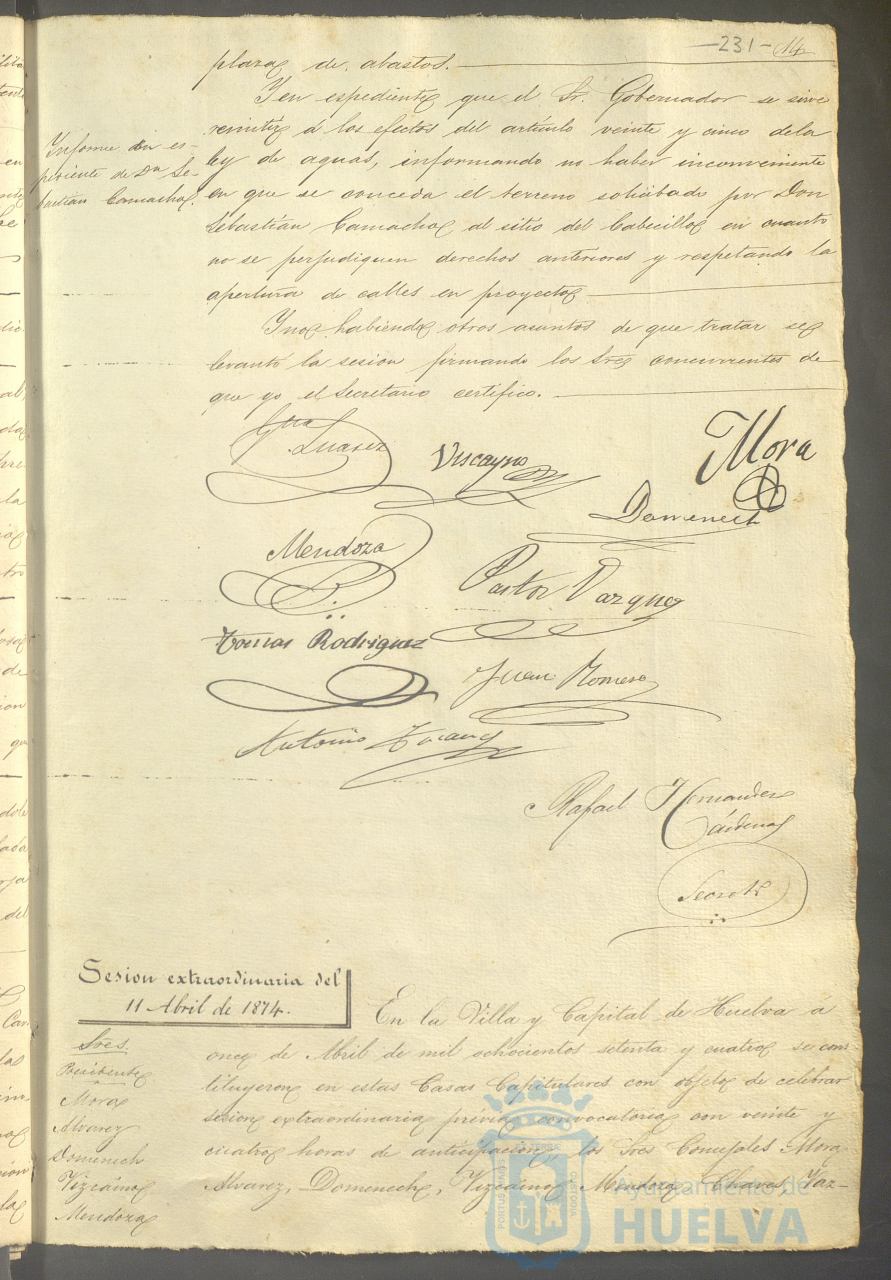 -231- 14
plaza de abastos.
Y en espediente que el Sr. Gobernador se sirve
remitir á los efectos del artículo veinte y cinco dela
ley de aguas, informando no haber inconveniente
en que se conceda el terreno solicitado por Don
Sebastián Camacho al sitio del Cabecillo en cuanto
no se perjudiquen derechos anteriores y respetando la
apertura de calles en proyecto
Informe en es-
pediente de Dn Se-
bastián Camacho.
Y no habiendo otros asuntos de que tratar se
levantó la sesion firmando los Sres concurrentes de
que yo el Secretario certifico.
Suarez
Viscayno
Mora
Domenech
Mendoza
Pastor Vazquez
Tomas Rodriguez
Juan Romero
Antonio
Rafael Hernandez
Cárdenas
Secret.
Sesion extraordinaria del
11 Abril de 1874.
En la Villa y Capital de Huelva á
once de Abril de mil ochocientos setenta y cuatro se cons-
tituyeron en estas Casas Capitulares con objeto de celebrar
sesion extraordinaria prévia convocatoria con veinte y
cuatro horas de anticipacion, los Sres Concejales Mora
Alvarez, Domenech, Vizcaino, Mendoza, Chaves, Vaz-
Sres.
Presidente
Mora
Alvarez
Domenech
Vizcaino
Mendoza
Ayuntamiento de
HUELVA